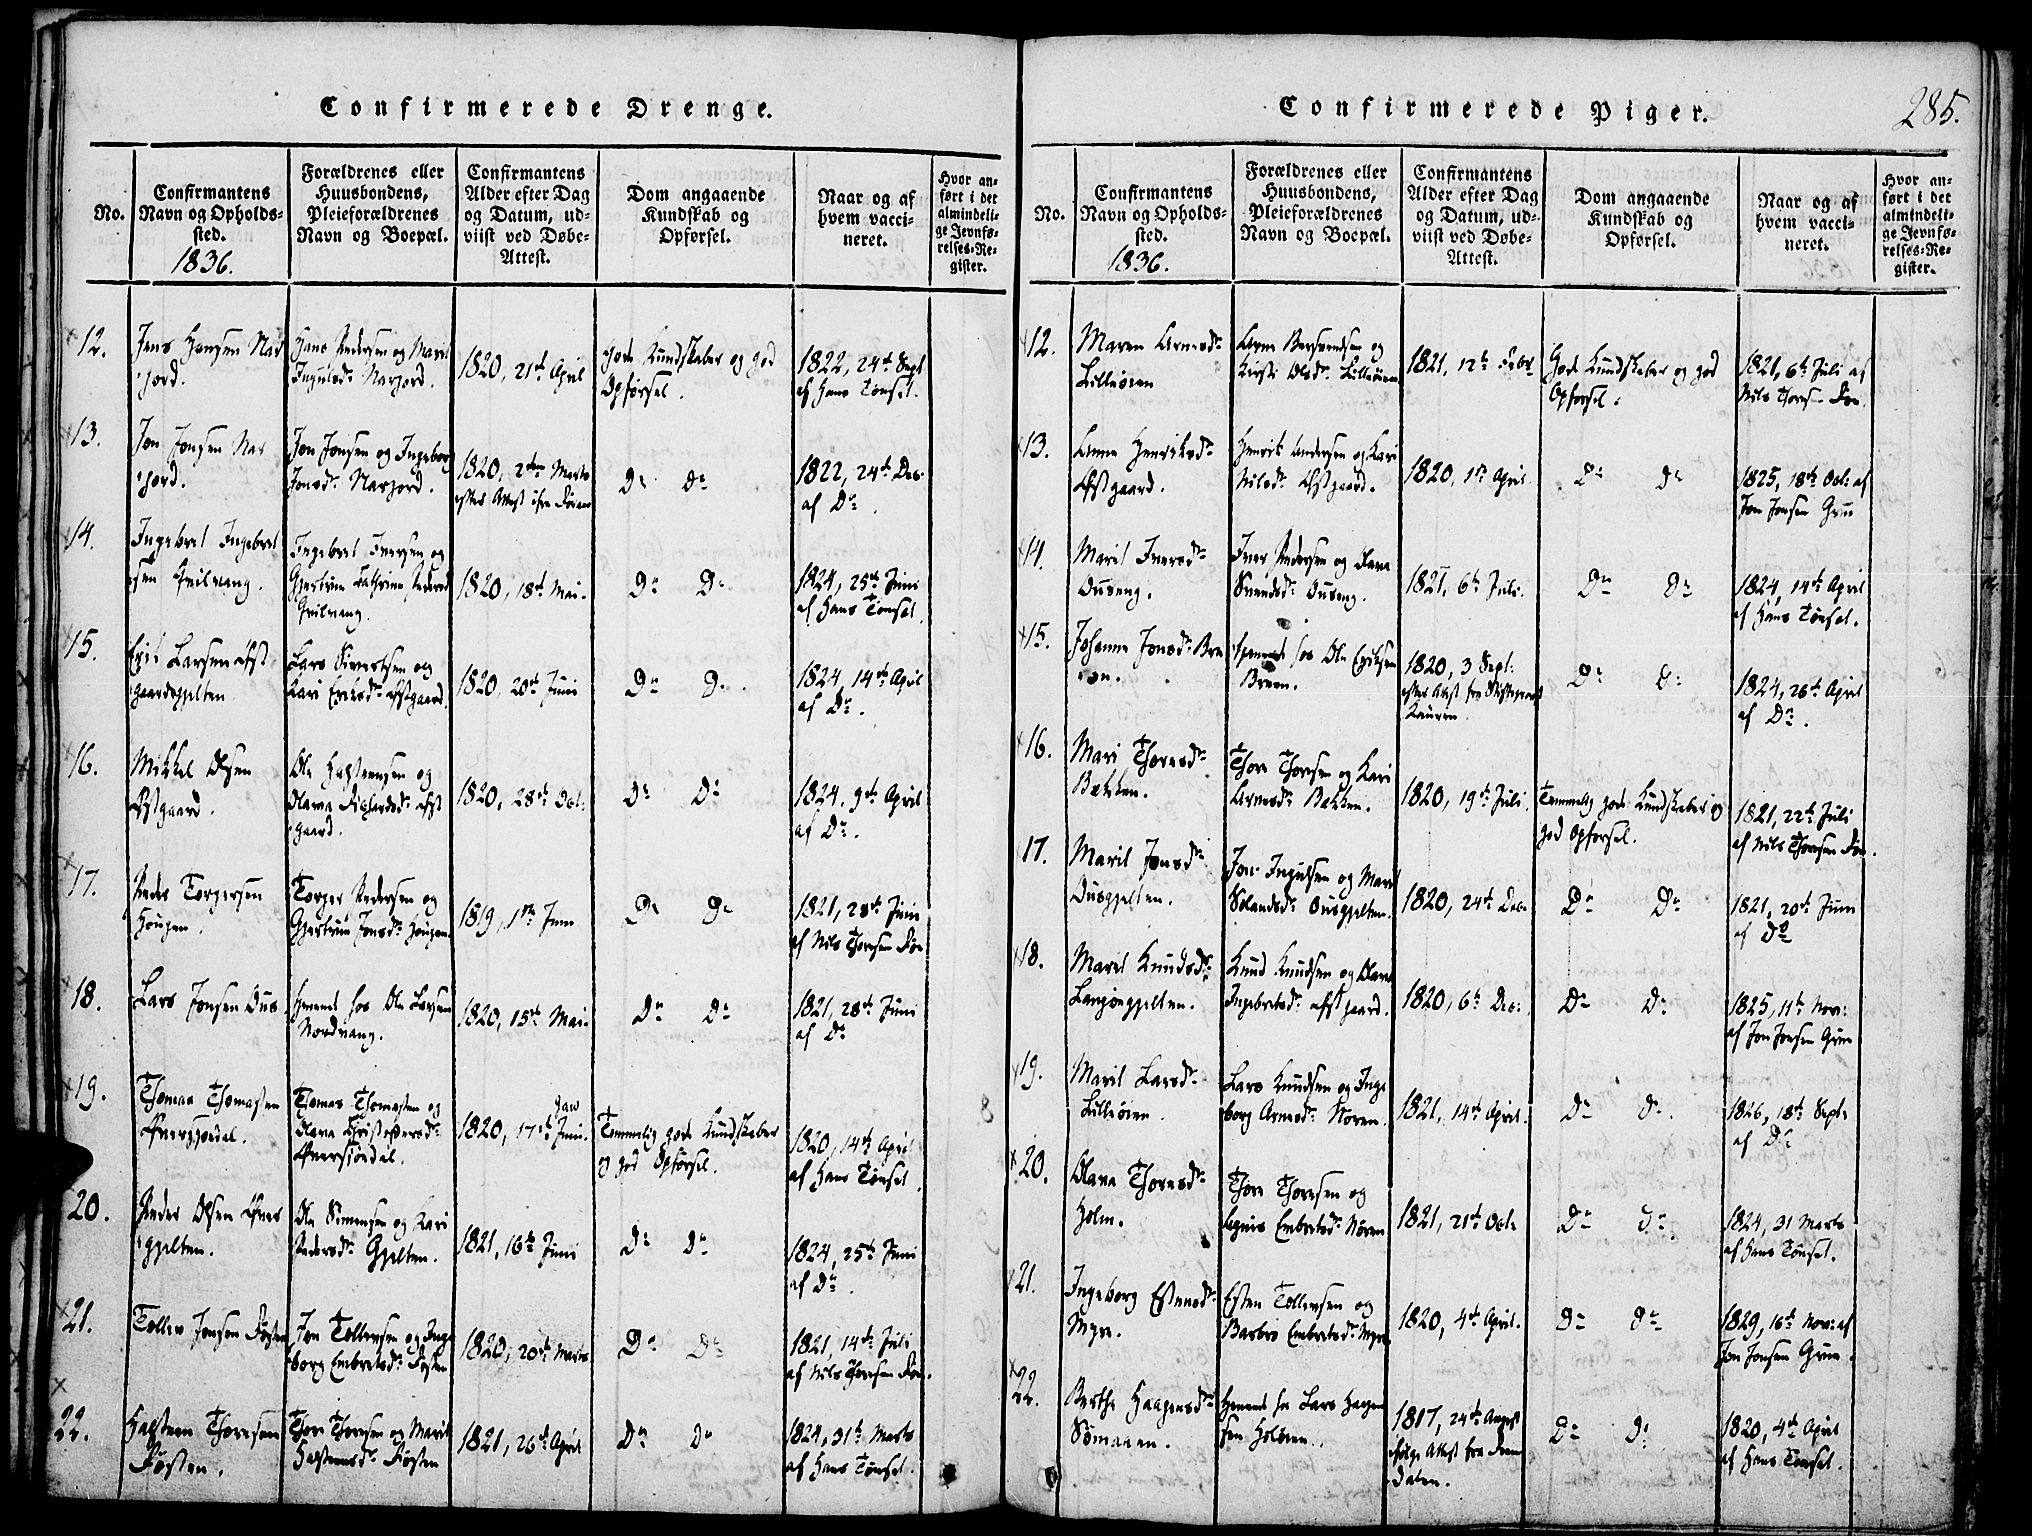 Confirmerede Drenge.
No.
Confirmantens
Navn og Opholds-
sted.
1836.
Forældrenes eller
Huusbondens,
Pleieforældrenes
Navn og Boepæl.
Confirmantens
Alder efter Dag
og Datum, ud-
viist ved Døbe-
Attest.
Dom angaaende
Kundskab og
Opførsel.
Naar og af
hvem vacci-
neret.
Hvor an-
ført i det
almindeli-
ge Jevnfø-
relses-Re-
gister.
12.
Jens Hansen Nar
jord.
Hans Pedersen og Marit
Ingulsdr Narjord.
1820, 21de April
gode Kundskaber og god
Opførsel.
1822, 24de Sept
af Hans Tønset.
13.
Jon Jonsen Nar
jord.
Jon Jonsen og Ingeborg
Jonsdr Narjord.
1820, 2den Marts
Do Do
1822, 24de Dec.
af Do.
14.
Ingebret Ingebret
sen
Ingebret Iversen og
Gjertrue Cathrine
1820, 18de Mai.
Do Do
1824, 25de Juni
af Hans Tønset.
15.
Erik Larsen Øst
gaardsgjelten
Lars Sivertsen og
Kari Eriksdr Østgaard.
1820, 20de Juni
Do Do
1824, 14de April
af Do.
16.
Mikkel Olsen
Østgaard.
Ole Halstensen og
Olava Øst
gaard.
1820, 28de Oct:
Do Do
1824, 9de April
af Do.
17.
Peder Torgersen
Hougen.
Torger Pedersen og
Gjertrue Jonsdr Hougen
1819, 1ste Juni
Do Do
1821, 28de Juni
af Nils Thoresen Føe
18.
Lars Jonsen Ous
tjenende hos Ole Larsen
Nordvang.
1820, 15de Mai.
Do Do
1821, 28de Juni
af Do
19.
Thomas Thomassen
Øversjødal.
Thomas Thomassen og
Olava Christophersdr
Øversjødal.
1820, 17de Juni.
Temmelig gode Kundskaber
og god Opførsel.
1820, 14de April
af Hans Tønset.
20.
Peder Olsen Øver
gjelten.
Ole Simensen og Kari
Pedersdr Gjelten.
1821, 16de Juni
Do Do
1824, 25de Juni
af Do.
21.
Tollev Jonsen Fosten
Jon Tollevsen og Inge
borg Embretsdr Fosten
1820, 20de Marts
Do Do
1821, 14de Juli
af Nils Thoresen Føe.
22.
Halsten Thoresen
Fosten.
Thore Thoresen og Marit
Halstensdr Fosten
1821, 26de April
Do Do
1824, 31te Marts
af Hans Tønset.
Confirmerede Piger.
285.
No.
Confirmantens
Navn og Opholds-
sted.
1836.
Forældrenes eller
Huusbondens,
Pleieforældrenes
Navn og Boepæl.
Confirmantens
Alder efter Dag
og Datum, ud-
viist ved Døbe-
Attest.
Dom angaaende
Kundskab og
Opførsel.
Naar og af
hvem vacci-
neret.
Hvor an-
ført i det
almindeli-
ge Jevnfø-
relses-Re-
gister.
12.
Maren Arnesdr
Lilleøien
Arne Bersvendsen og
Kirsti Olsdr Lilleøien
1821, 12te Febr
Gode Kundskaber og god
Opførsel.
1821, 6te Juli af
Nils Thoresen Føe.
13.
Anne Henriksdr
Østgaard.
Henrik Andersen og Kari
Nilsdr Østgaard.
1820, 1ste April.
Do Do
1825, 18de Oct: af
Jon Jonsen Grue
14.
Marit Iversdr
Ouseng.
Iver Pedersen og Olava
Svendsdr Ouseng.
1821, 6te Juli.
Do Do
1824, 14de April
af Hans Tønset.
15.
Johanne Jonsdr Bre
en.
tjenende hos Ole Eriksen
Breen.
1820, 3 Sept:
Do Do
1824, 26de April
af Do.
16.
Mari Thoresdr
Bækken.
Thore Thoresen og Kari
Arnesdr Bækken.
1820, 19de Juli
Temmelig gode Kundskaber og
god Opførsel.
1821, 22de Juli
af Nils Thoresen Føe.
17.
Marit Jonsdr
Ousgjelten.
Jon Ingulsen og Marit
Ousgjelten.
1820, 24de Dec
Do Do
1821, 20de Juni
af Do
18.
Marit Knudsdr
Langøegjelten.
Knud Knudsen og Olava
Ingebretsdr Østgaard.
1820, 6te Dec:
Do Do
1825, 11te Nov:
af Jon Jonsen Grue
19.
Marit Larsdr
Lilleøien.
Lars Knudsen og Inge
borg Arnesdr Noren.
1821, 14de April.
Do Do
1826, 18de Sept:
af Do
20.
Olava Thoresdr
Holm.
Thore Thoresen og
Embretsdr Nøren
1821, 21de Oct.
Do Do
1824, 31 Marts
af Hans Tønset.
21.
Ingeborg Estensdr
Myre.
Esten Tollevsen og
Barbro Embretsdr Myre
1820, 4de April.
Do Do
1829, 16de Nov: af
Jon Jonsen Grue.
22.
Berthe Haagensdr
Sömaaen.
tjenende hos Lars Haagen
sen Holøien.
1817, 24de August
ifølge Attest fra
dalen.
Do Do
1820, 4de April
af Hans Tønset.